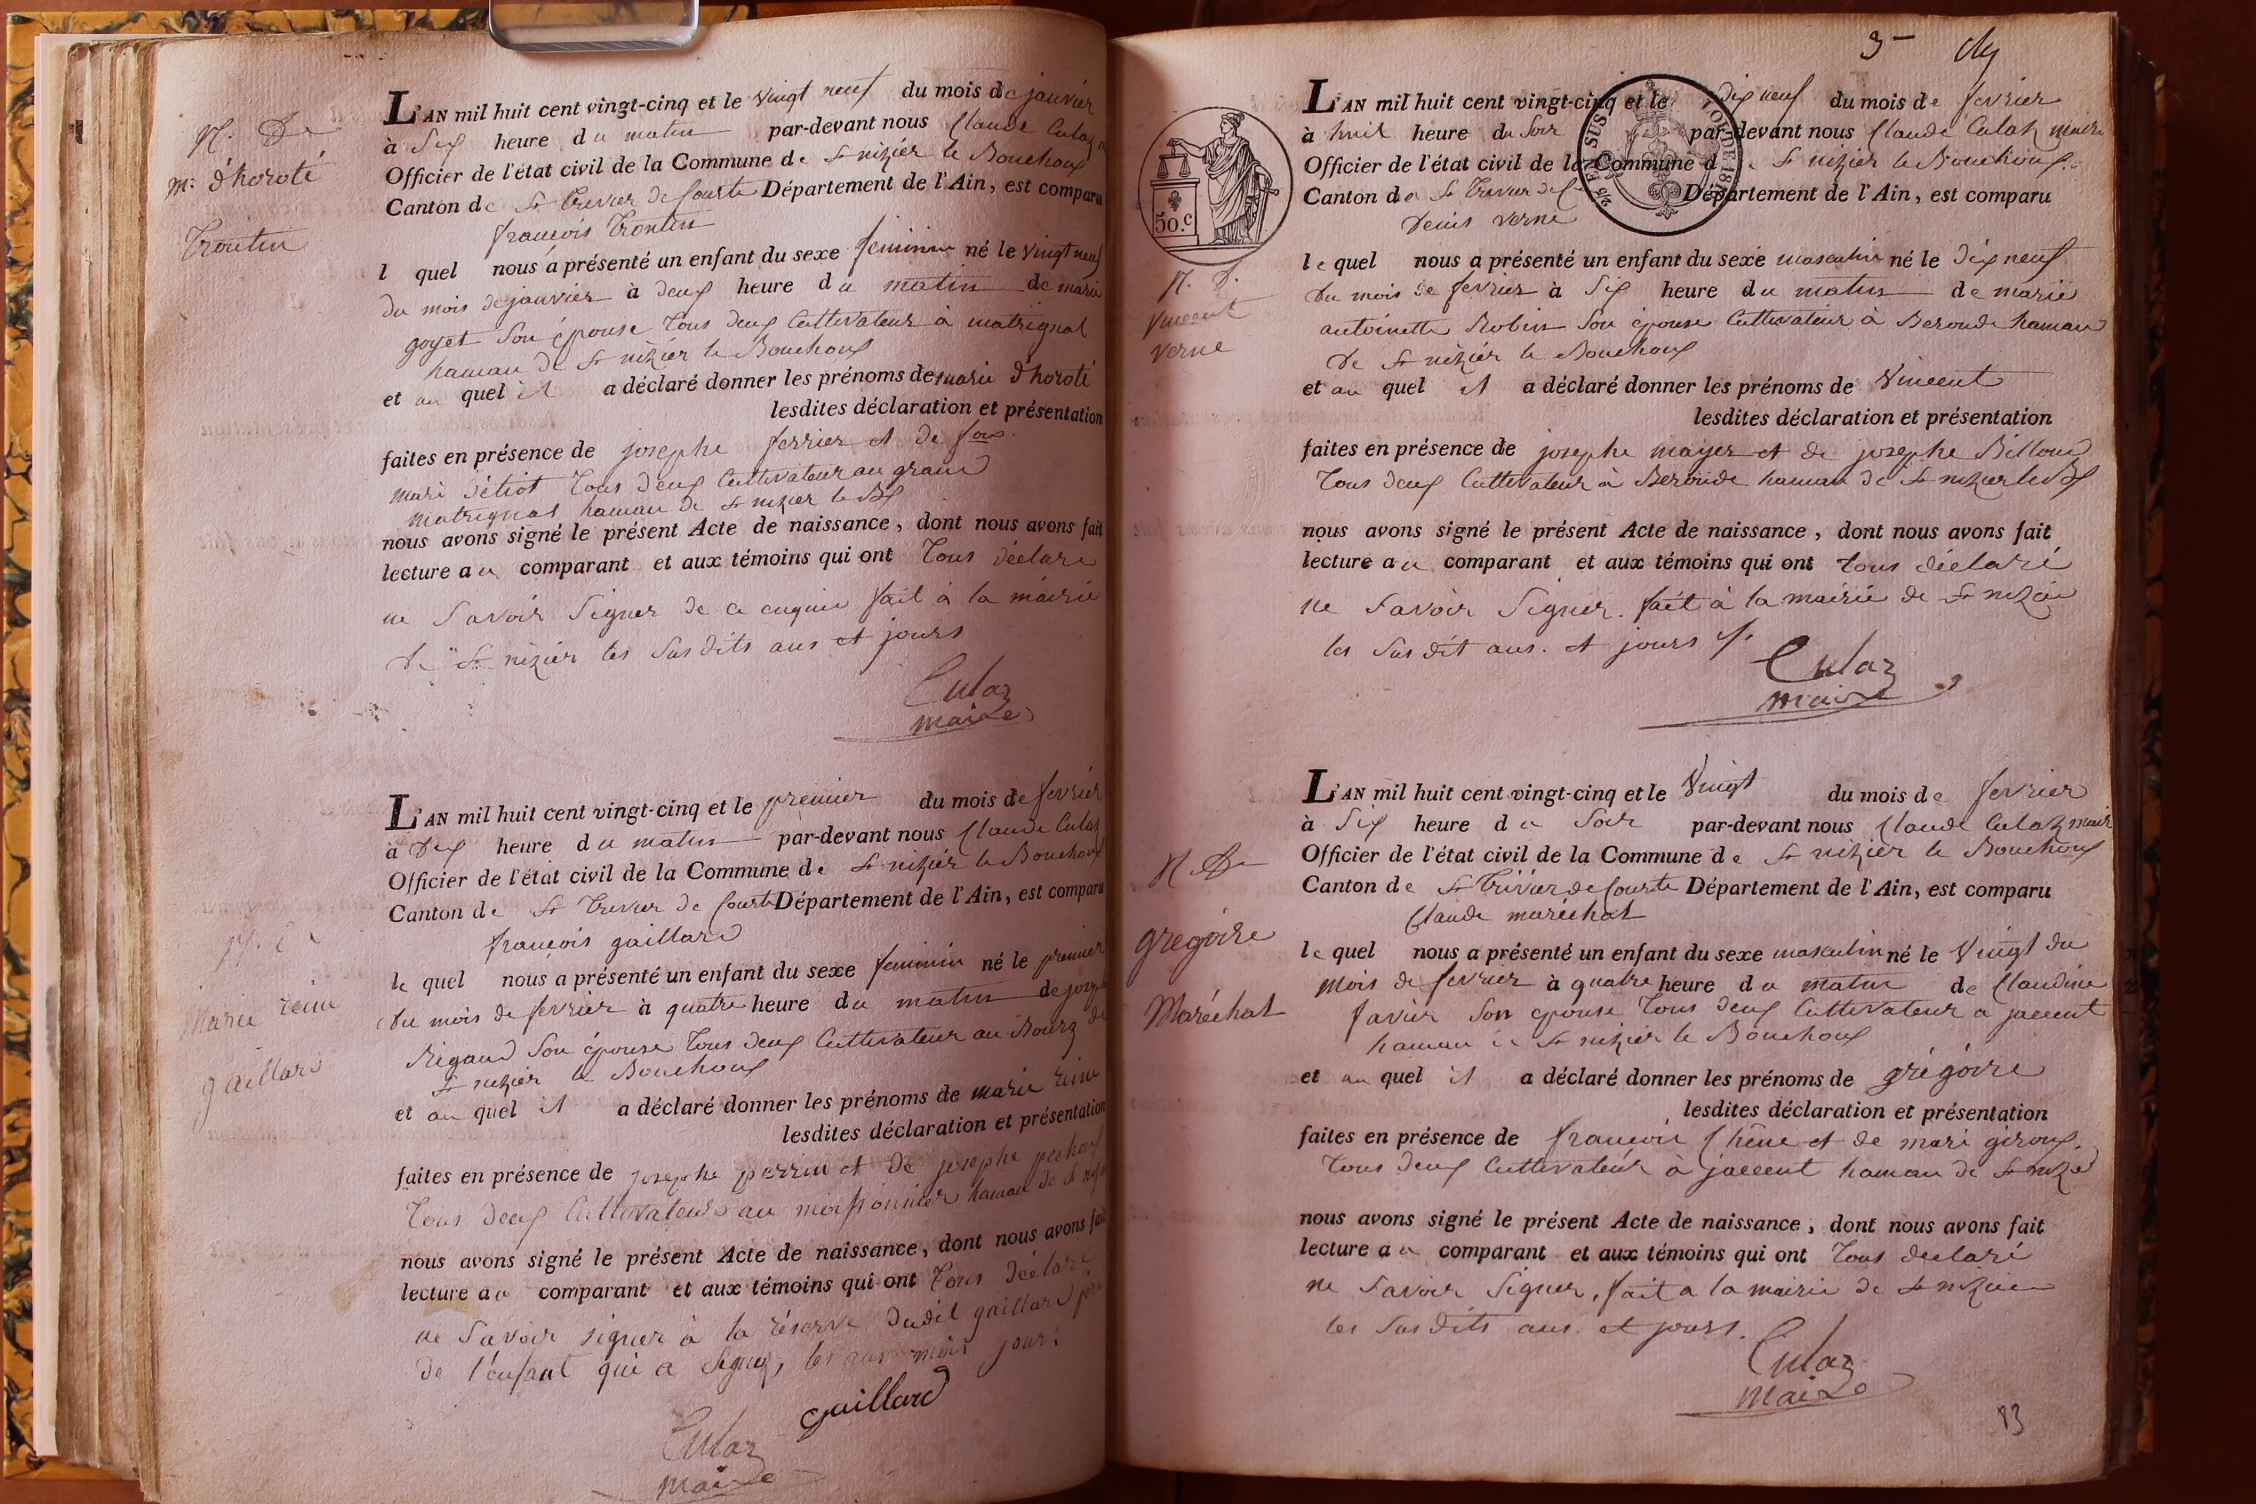 N. De
me dhoroté
Trontin
L'AN mil huit cent vingt-cinq et le vingt neuf du mois de janvier
à Six heure du matin par-devant nous Claude Culaz
Officier de l'état civil de la Commune de St nizier le Bouchoux
Canton de St Trivier de Courte Département de l'Ain, est comparu
françois Trontin
l quel nous a présenté un enfant du sexe feminin né le vingt neuf
du mois de janvier à deux heure du matin de marie
goyet Son épouse Tous deux Cultivateur à matrignat
hamau de St nizier le Bouchoux
et au quel il a déclaré donner les prénoms de marie dhoroté
lesdites déclaration et présentation
faites en présence de josephe ferrier et de
mari Tous deux Cultivateur au grand
matrignat hamau de St nizier le Bx
nous avons signé le présent Acte de naissance, dont nous avons fait
lecture au comparant et aux témoins qui ont Tous déclaré
ne Savoir Signer de ce enquis fait à la mairie
de St nizier les Susdits ans et jours
Culaz
maire
N. De
Marie reine
gaillard
L'AN mil huit cent vingt-cinq et le premier du mois de fevrier
à Dix heure du matin par-devant nous Claude Culaz
Officier de l'état civil de la Commune de St nizier le Bouchoux
Canton de St Trivier de Courte Département de l'Ain, est comparu
françois gaillard
le quel nous a présenté un enfant du sexe feminin né le premier
du mois de fevrier à quatre heure du matin de josephe
Rigaud Son épouse Tous deux Cultivateur au Bourg de
St nizier le Bouchoux
et au quel il a déclaré donner les prénoms de marie reine
lesdites déclaration et présentation
faites en présence de josephe perrin et de josephe
Tous deux Cultivateurs au moissonnier hamau de St
nous avons signé le présent Acte de naissance, dont nous avons fait
lecture au comparant et aux témoins qui ont Tous Déclaré
ne Savoir signer à la réserve dudit gaillard père
de l'enfant qui a Signé, les ans mois jours
gaillard
Culaz
maire
3
50.c
N. D.
Vincent
Verne
L'AN mil huit cent vingt-cinq et le dix neuf du mois de fevrier
à huit heure du Soir par-devant nous Claude Culaz maire
Officier de l'état civil de la Commune de St nizier le Bouchoux
Canton de St Trivier de C Département de l'Ain, est comparu
Denis Verne
le quel nous a présenté un enfant du sexe masculin né le dix neuf
du mois de fevrier à Six heure du matin de marie
antoinette Robin Son épouse Cultivateur à Beroude hamau
de St nizier le Bouchoux
et au quel il a déclaré donner les prénoms de Vincent
lesdites déclaration et présentation
faites en présence de josephe mayer et de josephe Billoud
Tous deux Cultivateur à Beroude hamau de St nizier le Bx
nous avons signé le présent Acte de naissance, dont nous avons fait
lecture au comparant et aux témoins qui ont tous déclaré
ne Savoir Signer. fait à la mairie de St nizier
les Susdit ans. et jours
Culaz
maire
N. De
gregoire
Maréchat
L'AN mil huit cent vingt-cinq et le Vingt du mois de fevrier
à Six heure du Soir par-devant nous Claude Culaz maire
Officier de l'état civil de la Commune de St nizier le Bouchoux
Canton de St Trivier de Courte Département de l'Ain, est comparu
Claude maréchat
le quel nous a présenté un enfant du sexe masculin né le Vingt du
mois de fevrier à quatre heure du matin de Claudine
favier Son epouse Tous deux Cultivateur a jaccent
hamau de St nizier le Bouchoux
et au quel il a déclaré donner les prénoms de grégoire
lesdites déclaration et présentation
faites en présence de françois Chêne et de mari giroux.
Tous deux Cultivateur à jaccent hamau de St nizé
nous avons signé le présent Acte de naissance, dont nous avons fait
lecture au comparant et aux témoins qui ont Tous déclaré
ne Savoir Signer, fait a la mairie de St nizier
les Susdits ans. et jours.
Culaz
maire
83